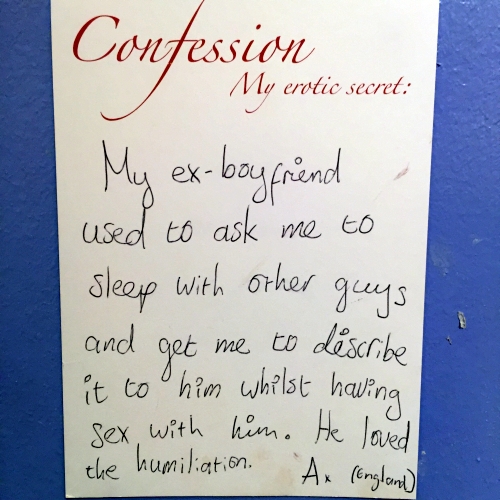 Confession
My erotic secret:
My ex-boyfriend
used to ask me to
sleep with other guys
and get me to describe
it to him whilst having
sex with him. He loved
the humiliation. Ax (England)